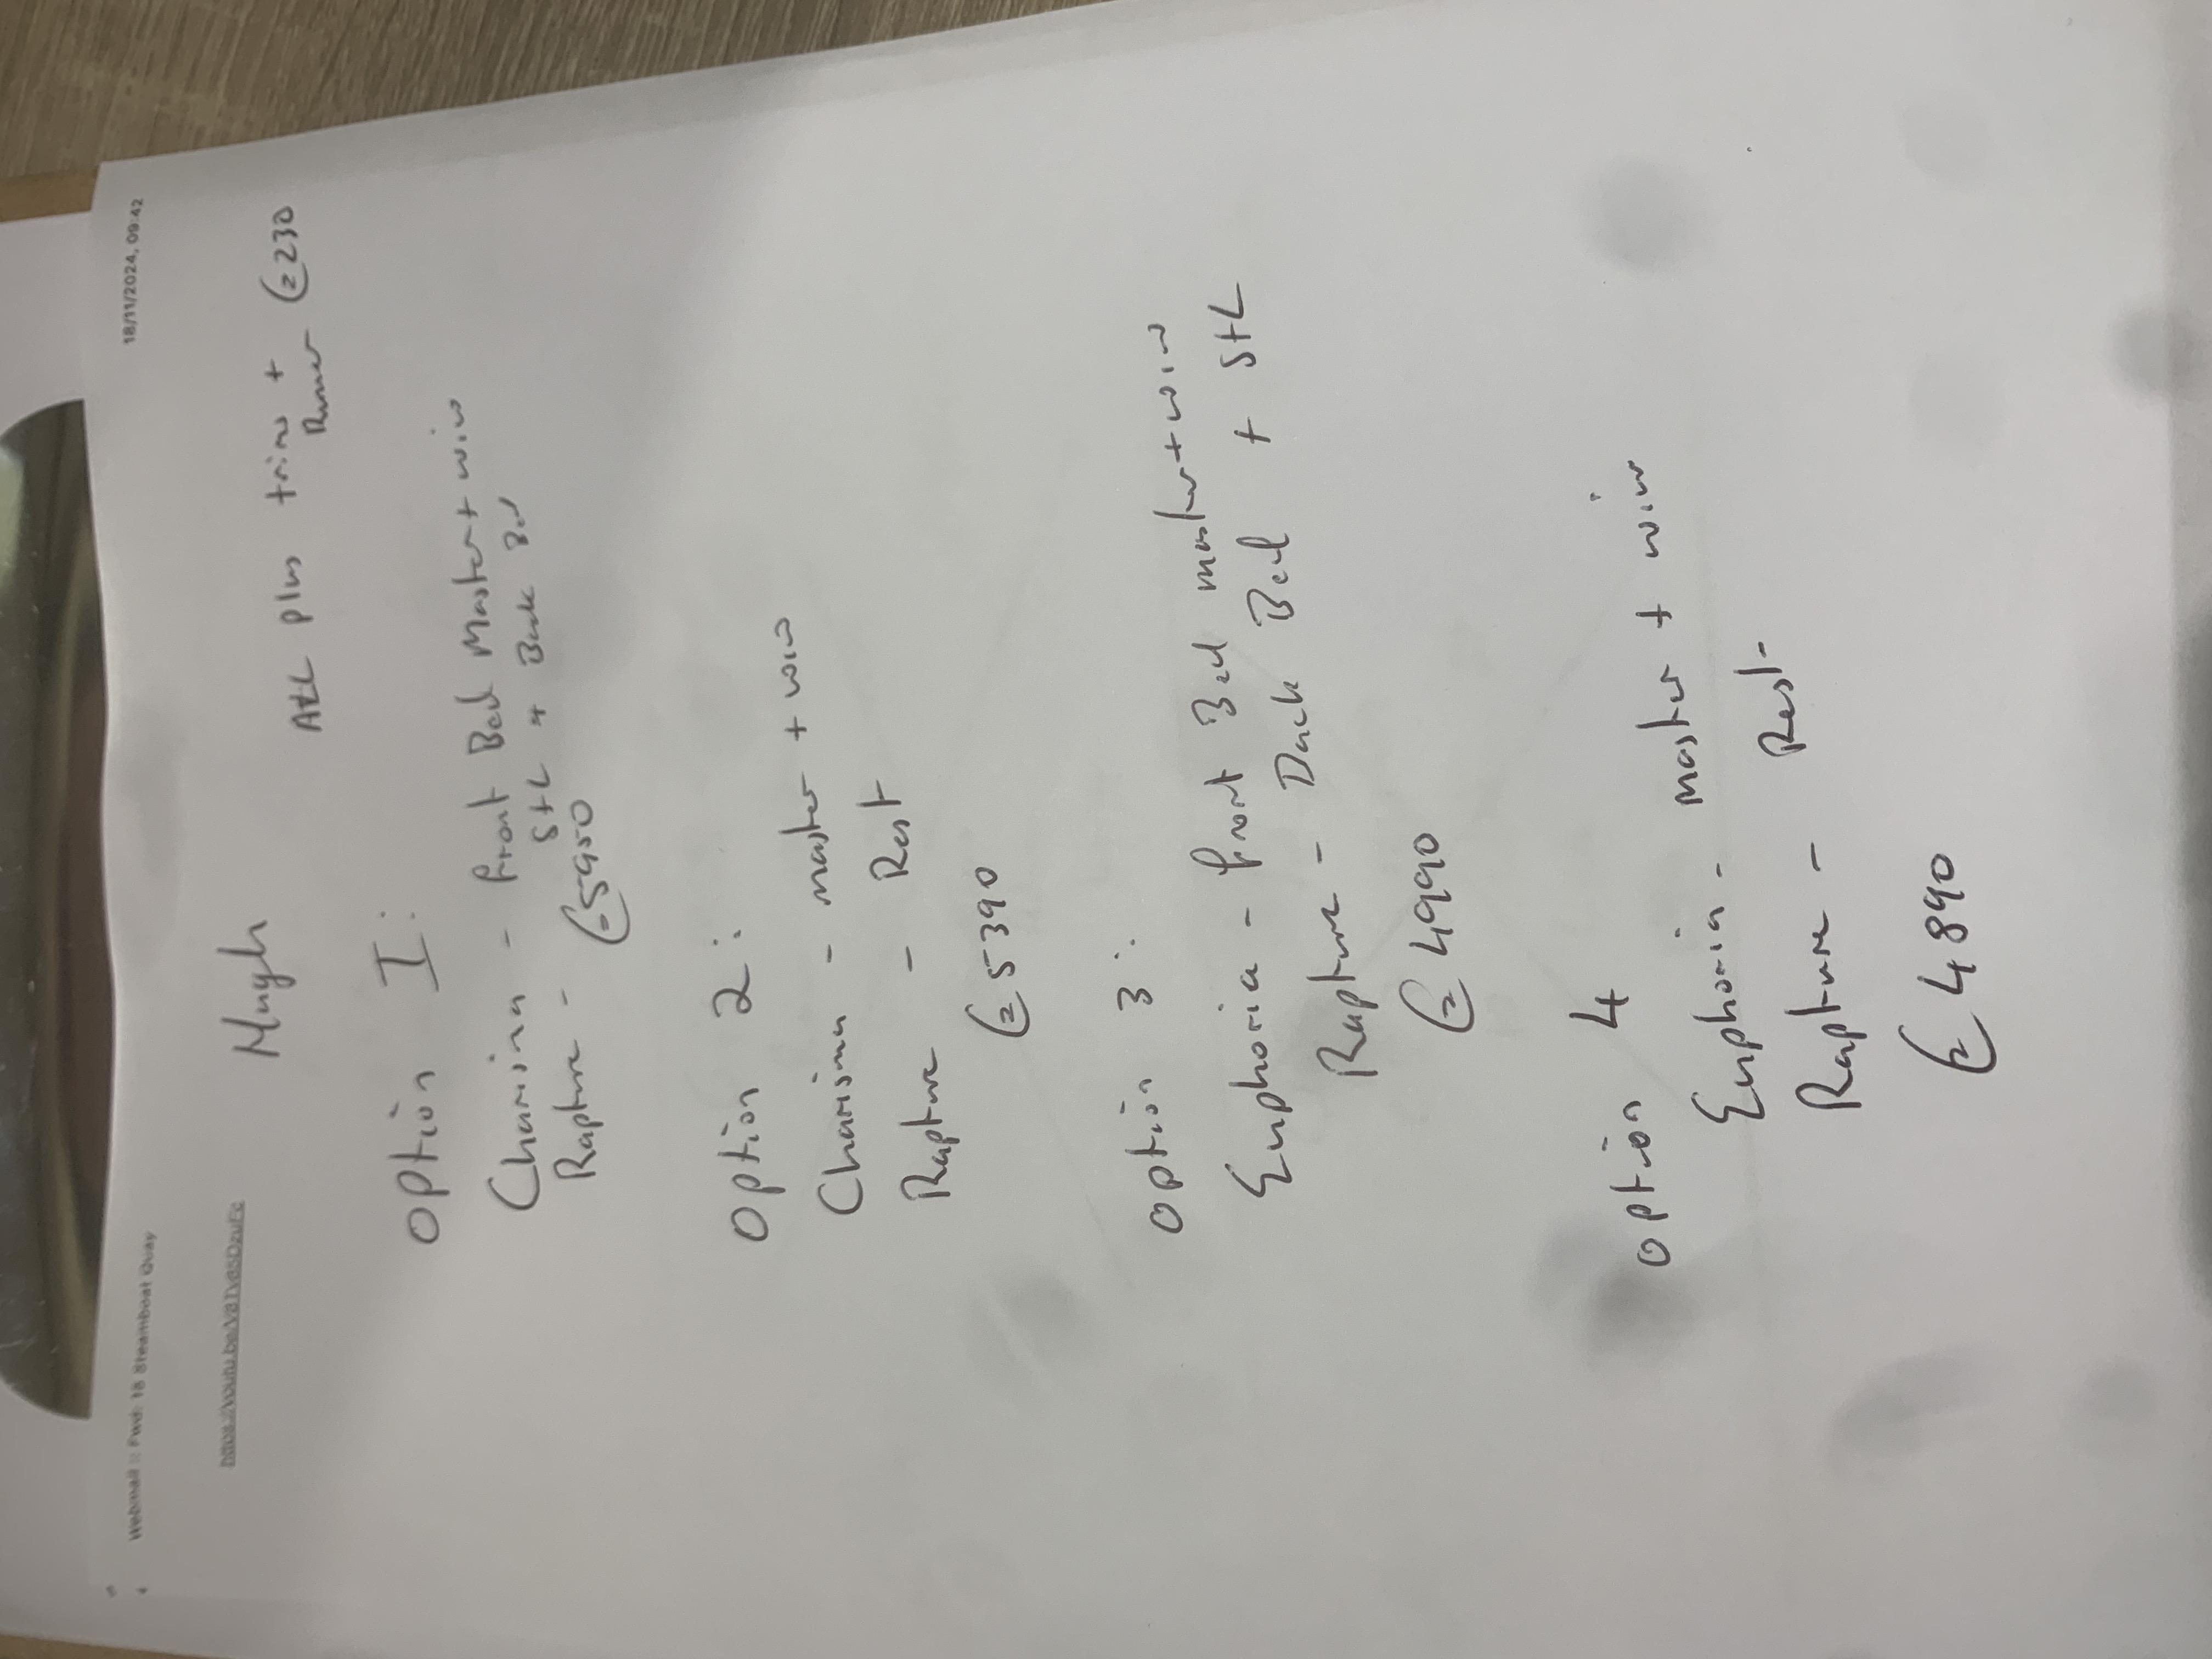 Webmail :: Fwd: 18 Steamboat Quay 18/11/2024, 09:42
Hugh
ALL plus trims +
Runner €230
Option I:
Charisma - Front Bed Master + wiw
Rapture - S+L + Back Bed
€5950
Option 2:
Charisma - master + wiw
Rapture - Rest
€5390
Option 3:
Euphoria - Front Bed master + wiw
Rapture - Back Bed + S+L
€4990
Option 4
Euphoria - master + wiw
Rapture - Rest
€4890